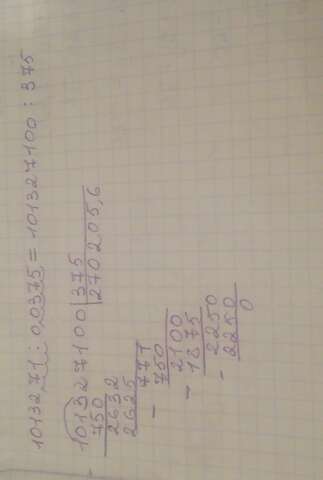 10132,71 : 0,0375 = 101327100 : 375
101327100 375
750 270205,6
2632
2625
771
- 750
2100
- 1875
2250
- 2250
0